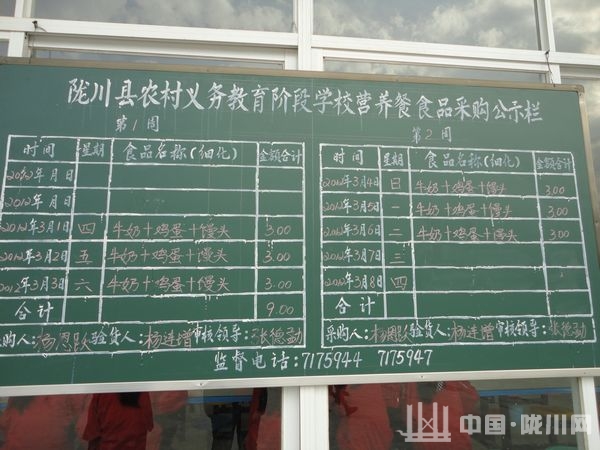 陇川县农村义务教育阶段学校营养餐食品采购公示栏
第1周
时间 星期 食品名称(细化) 金额合计
2012年 月 日
2012年 月 日
2012年3月1日 四 牛奶+鸡蛋+馒头 3.00
2012年3月2日 五 牛奶+鸡蛋+馒头 3.00
2012年3月3日 六 牛奶+鸡蛋+馒头 3.00
合计 9.00
采购人: 验货人: 杨连增 审核领导: 张德勐
第2周
时间 星期 食品名称(细化) 金额合计
2012年3月4日 日 牛奶+鸡蛋+馒头 3.00
2012年3月5日 一 牛奶+鸡蛋+馒头 3.00
2012年3月6日 二 牛奶+鸡蛋+馒头 3.00
2012年3月7日 三
2012年3月8日 四
合计
采购人: 验货人: 杨连增 审核领导: 张德勐
监督电话:7175944 7175947
中国·陇川网